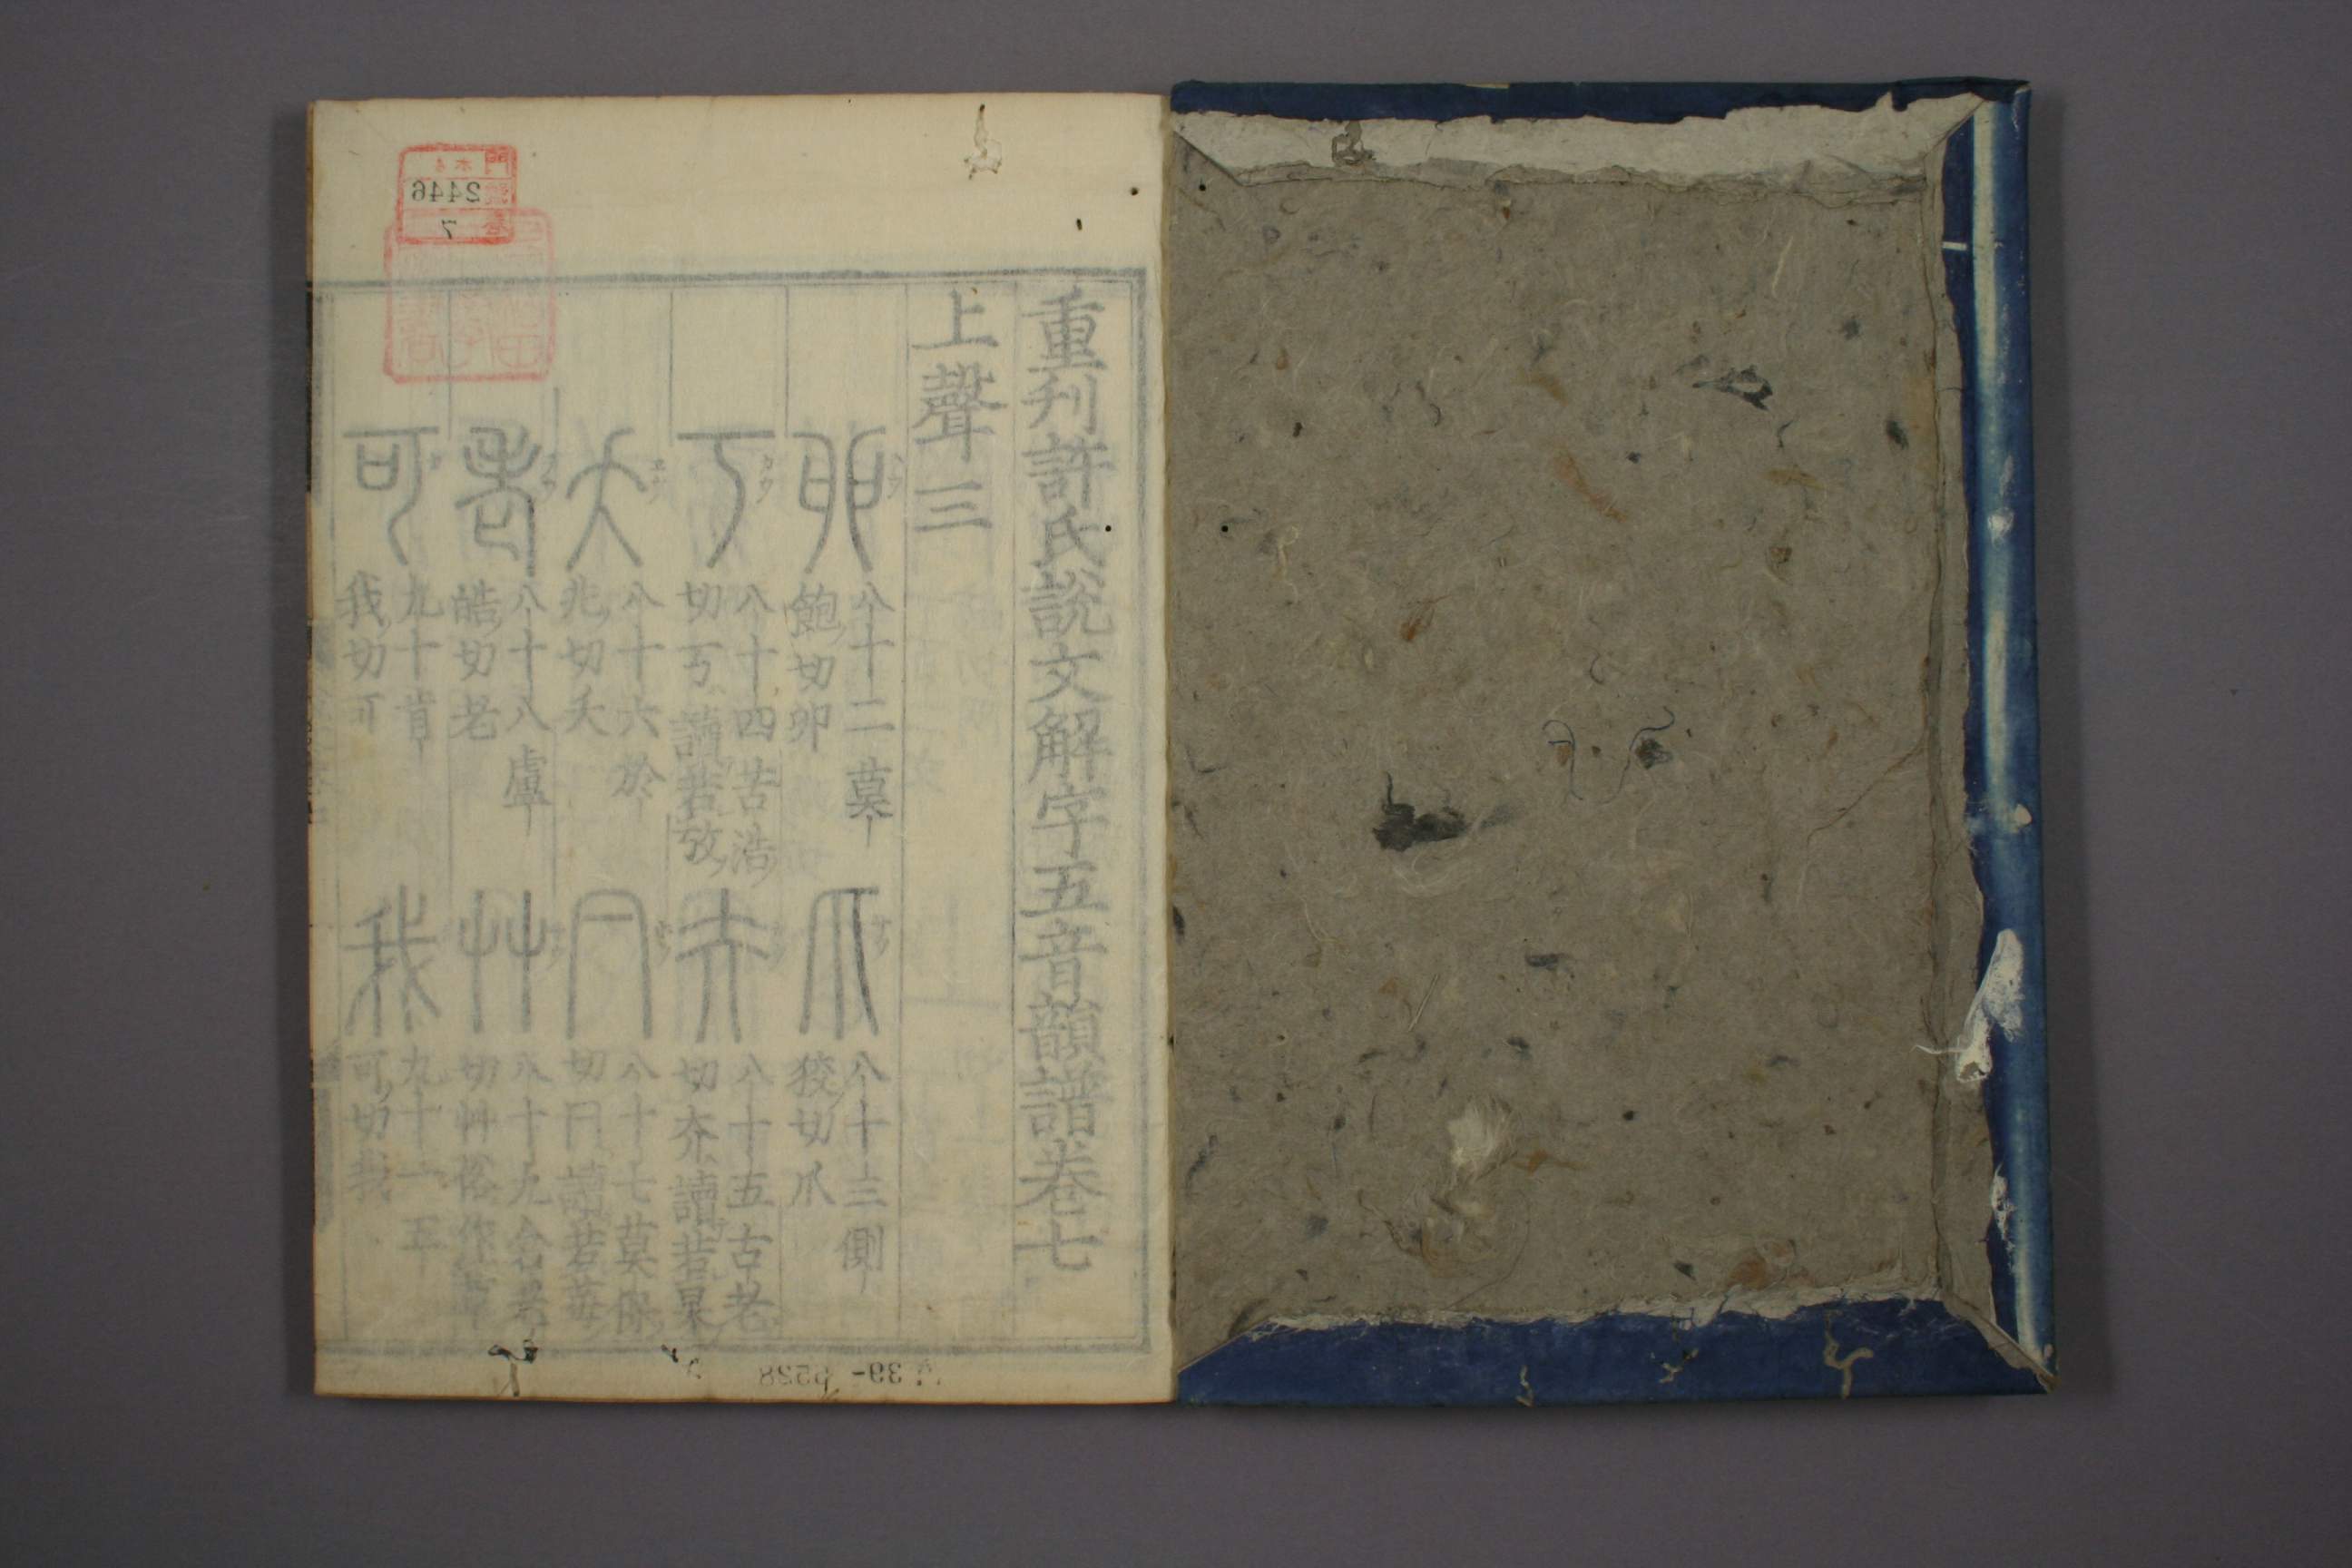 重刋許氏說文解字五音韻譜卷七
上聲三
卯 八十二莫
飽切卯
爪 八十三側
狡切爪
丂 八十四苦浩
切丂讀若攷
夰 八十五古老
切夰讀若杲
夭 八十六於
兆切夭
冃 八十七莫保
切冃讀若
老 八十八盧
皓切老
艸 八十九倉老
切艸俗作草
可 九十肯
我切可
我 九十一五
可切我
2446
7